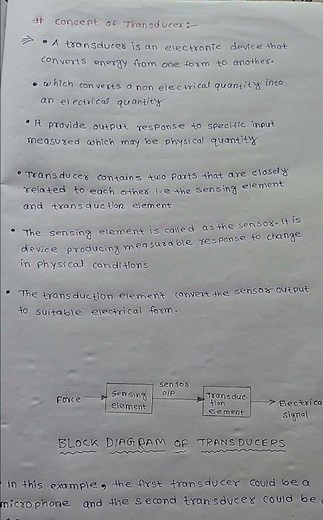 # Concept of Transducer :-
⇒ • A transducer is an electronic device that
converts energy from one form to another.
• which converts a non electrical quantity into
an electrical quantity
• It provide output response to specific input
measured which may be physical quantity
• Transducer contains two Parts that are closely
related to each other i.e the sensing element
and transduction element
• The sensing element is called as the sensor. It is
device producing measurable response to change
in physical conditions
• The transduction element convert the sensor output
to suitable electrical form.
Force → Sensing element → sensor O/P → Transduc-
tion element → Electrica
signal
BLOCK DIAGRAM OF TRANSDUCERS
In this example, the first transducer could be a
microphone and the second transducer could be